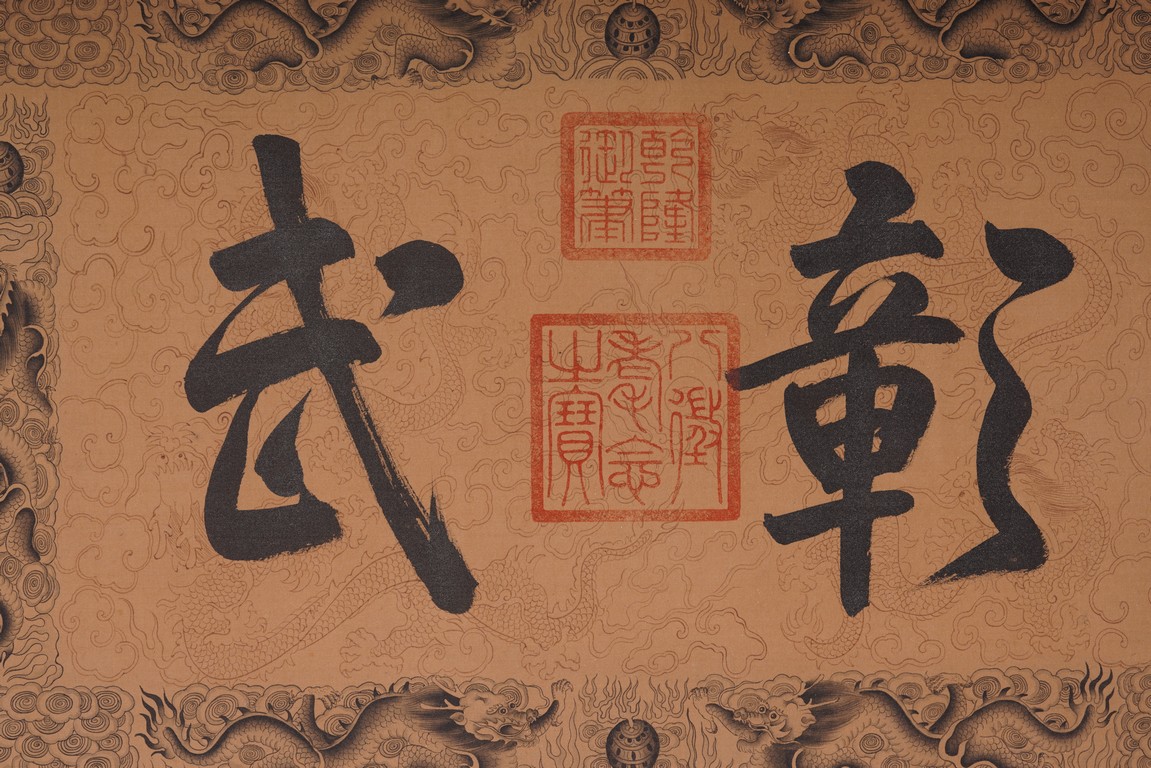 彰武
乾隆御筆
八徵耄念之寶